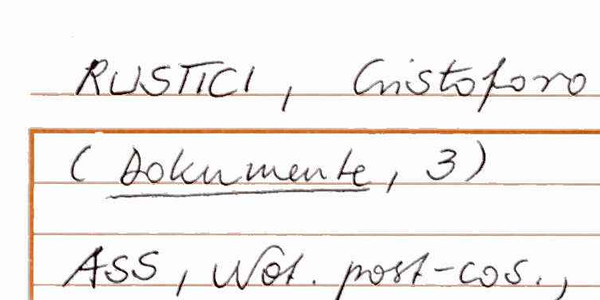 RUSTICI, Cristoforo
(Dokumente, 3)
ASS, Not. post-cos.,